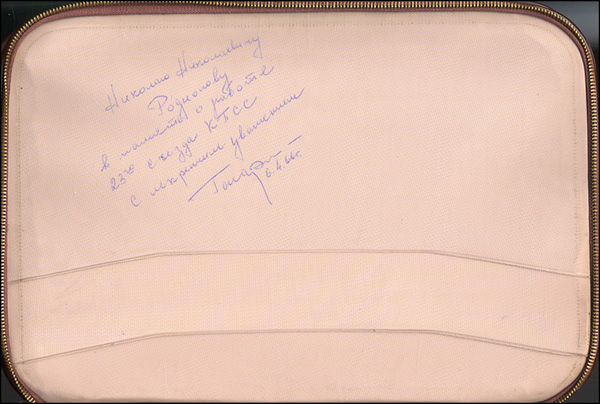 Николаю Николаевичу
Родионову
в память о работе
23го съезда КПСС
с искренним уважением
6.4.66г.